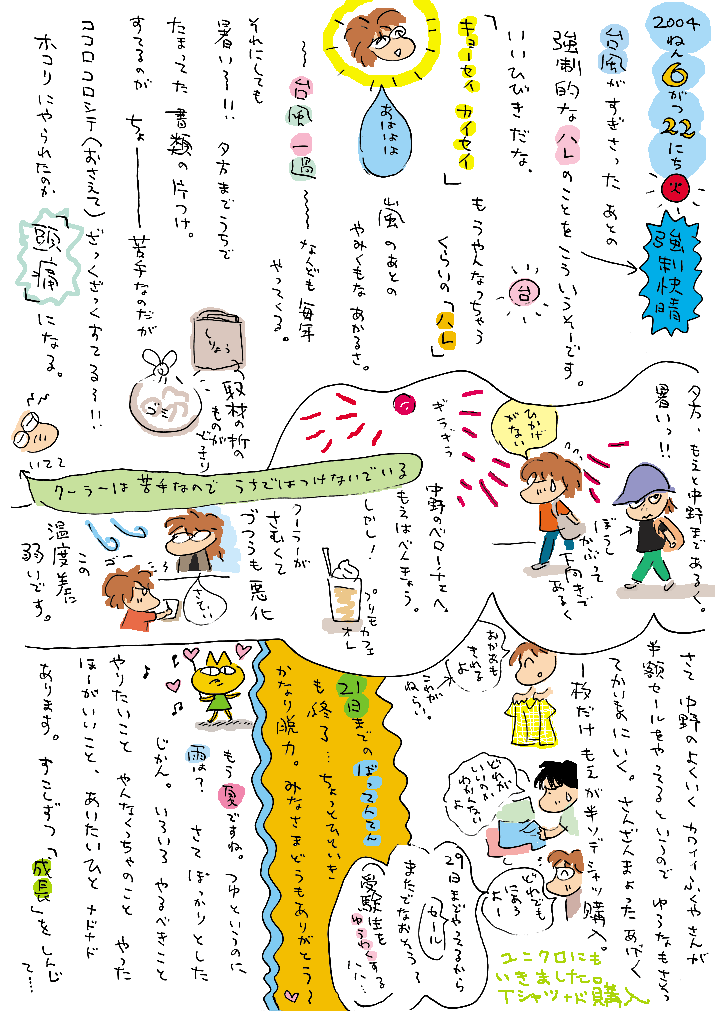 2004
ねん6がつ22にち
火
強制快晴
台風がすぎさったあとの
強制的なハレのことをこういうそーです。
いいひびきだな。
「キョーセイ カイセイ」
あははは
台
もうやんなっちゃう
くらいの「ハレ」
嵐のあとの
やみくもなあかるさ。
〜〜台風一過〜〜〜なんども毎年
やってくる。
それにしても
暑い〜!!夕方までうちで
たまってた書類の片づけ。
するのがちょ———苦手なのだが
ココロコロシテ(おさえて)ざっくざっくすてる〜!!
ホコリにやられたのか
「頭痛」になる。
しりょう
ゴミ
取材の折の
ものが
どっさり
いててて
夕方、もえと中野まであるく。
暑いっ!!
ぼうし
かぶって
下向きで
あるく
ひかげ
がない
ぎらぎら
中野のベローチェへ。
もえはべんきょう。
プリモカフェ
オレ
しかし!
クーラーが
さむくて
づつうも悪化
クーラーは苦手なのでうちではつけないでいる
さむい
この
温度差に
弱いです。
さて中野のよくいくカワイイふくやさんが
半額セールをやってるというのでゆうなもさそっ
てかいものにいく。さんざんまよったあげく
一枚だけもえが半ソデシャツ購入。
おかおも
きれる
よ
これが
ねらい!
どれが
いいのか
わかんない
よ
どれでも
にあう
よー
29日までやってるから
またでなおそう〜
セール
受験生を
ゆうわくする
ユニクロにも
いきました。
Tシャツナド購入
21日までのばってんてん
も終了…ちょっとひといき
かなり脱力。みなさまどうもありがとう〜
もう夏ですね。つゆというのに
雨は?さてぽっかりとした
じかん。いろいろやるべきこと
やりたいことやんなくっちゃのことやった
ほーがいいこと、あいたいひとナドナド
あります。すこしずつ「成長」をしんじ
て…